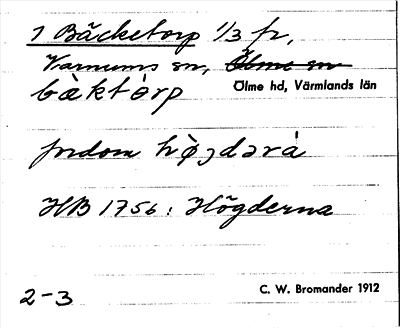 1 Bäcketorp 1/3 fr,
Varnums sn, Ölme sn
bàktòrp Ölme hd, Värmlands län
fordom hò̩gdərà
HB 1756: Högderna
2-3 C. W. Bromander 1912